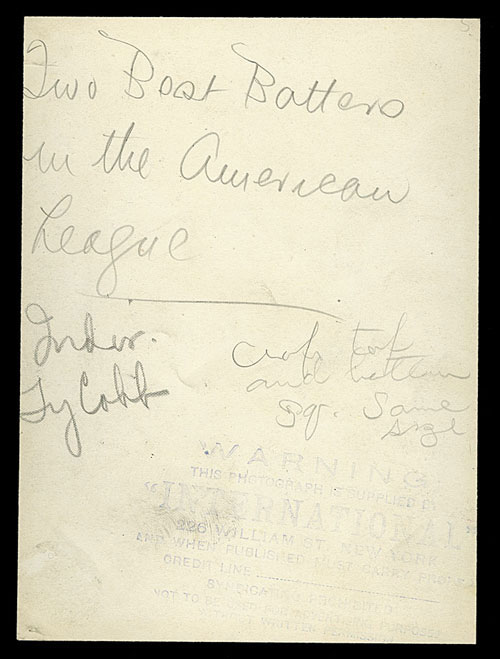 Two Best Batters
in the American
League
Indiv.
Ty Cobb
Crop top
and bottom
sq. Same
size
WARNING
THIS PHOTOGRAPH IS SUPPLIED BY
"INTERNATIONAL"
226 WILLIAM ST. NEW YORK
AND WHEN PUBLISHED MUST CARRY PROPER
CREDIT LINE
SYNDICATING PROHIBITED
NOT TO BE USED FOR ADVERTISING PURPOSES
WITHOUT WRITTEN PERMISSION